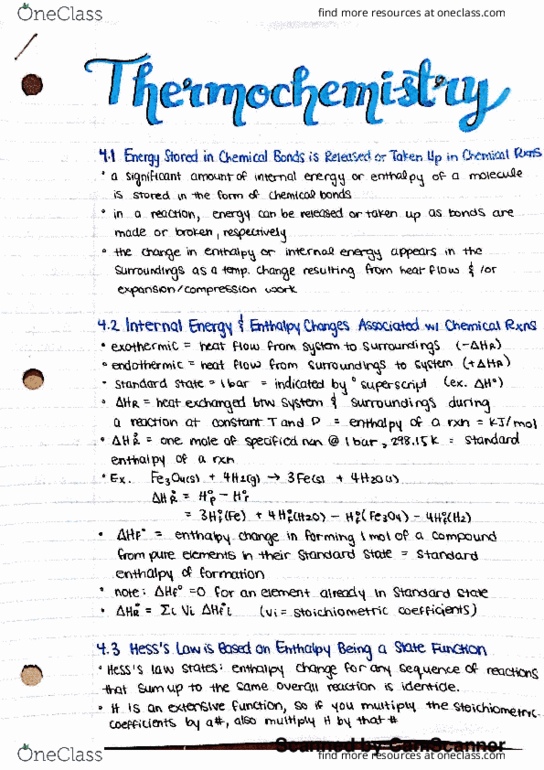 OneClass
find more resources at oneclass.com
Thermochemistry
4.1 Energy Stored in Chemical Bonds is Released or Taken Up in Chemical Rxns
• a significant amount of internal energy or enthalpy of a molecule
is stored in the form of chemical bonds
• in a reaction, energy can be released or taken up as bonds are
made or broken, respectively
• the change in enthalpy or internal energy appears in the
surroundings as a temp. change resulting from heat flow & /or
expansion/compression work
4.2 Internal Energy & Enthalpy Changes Associated w/ Chemical Rxns
• exothermic = heat flow from system to surroundings (-ΔHR)
• endothermic = heat flow from surroundings to system (+ΔHR)
• standard state = 1 bar = indicated by ° superscript (ex. ΔH°)
• ΔHR = heat exchanged btw system & surroundings during
a reaction at constant T and P = enthalpy of a rxn = kJ/mol
• ΔH°R = one mole of specified rxn @ 1 bar, 298.15K = standard
enthalpy of a rxn
• Ex. Fe3O4(s) + 4H2(g) → 3Fe(s) + 4H2O(l)
ΔH°R = H°p - H°r
= 3H°f(Fe) + 4H°f(H2O) - H°f(Fe3O4) - 4H°f(H2)
• ΔHf° = enthalpy change in forming 1 mol of a compound
from pure elements in their standard state = standard
enthalpy of formation
• note: ΔHf° =0 for an element already in standard state
• ΔH°R = Σi Vi ΔH°f,i (vi = stoichiometric coefficients)
4.3 Hess's Law is Based on Enthalpy Being a State Function
• Hess's law states: enthalpy change for any sequence of reactions
that sum up to the same overall reaction is identicle.
• H is an extensive function, so if you multiply the stoichiometric
coefficients by a #, also multiply H by that #
Scanned by CamScanner
OneClass
find more resources at oneclass.com